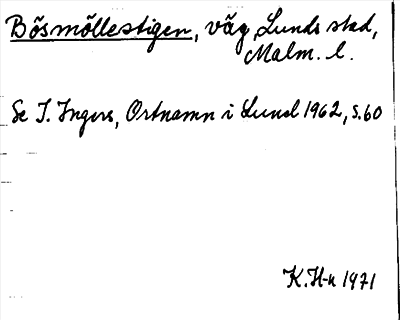 Bösmöllestigen, väg, Lunds stad,
Malm. l.
Se I. Ingers, Ortnamn i Lund 1962, s. 60
K. H-n 1971